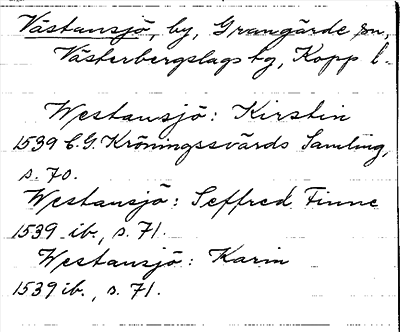 Västansjö, by, Grangärde sn,
Västerbergslags tg, Kopp l.
Westansjö: Kirstin
1539 C.G. Kröningssvärds Samling,
s. 70.
Westansjö: Seffred Finne
1539 ib., s. 71.
Westansjö: Karin
1539 ib., s. 71.